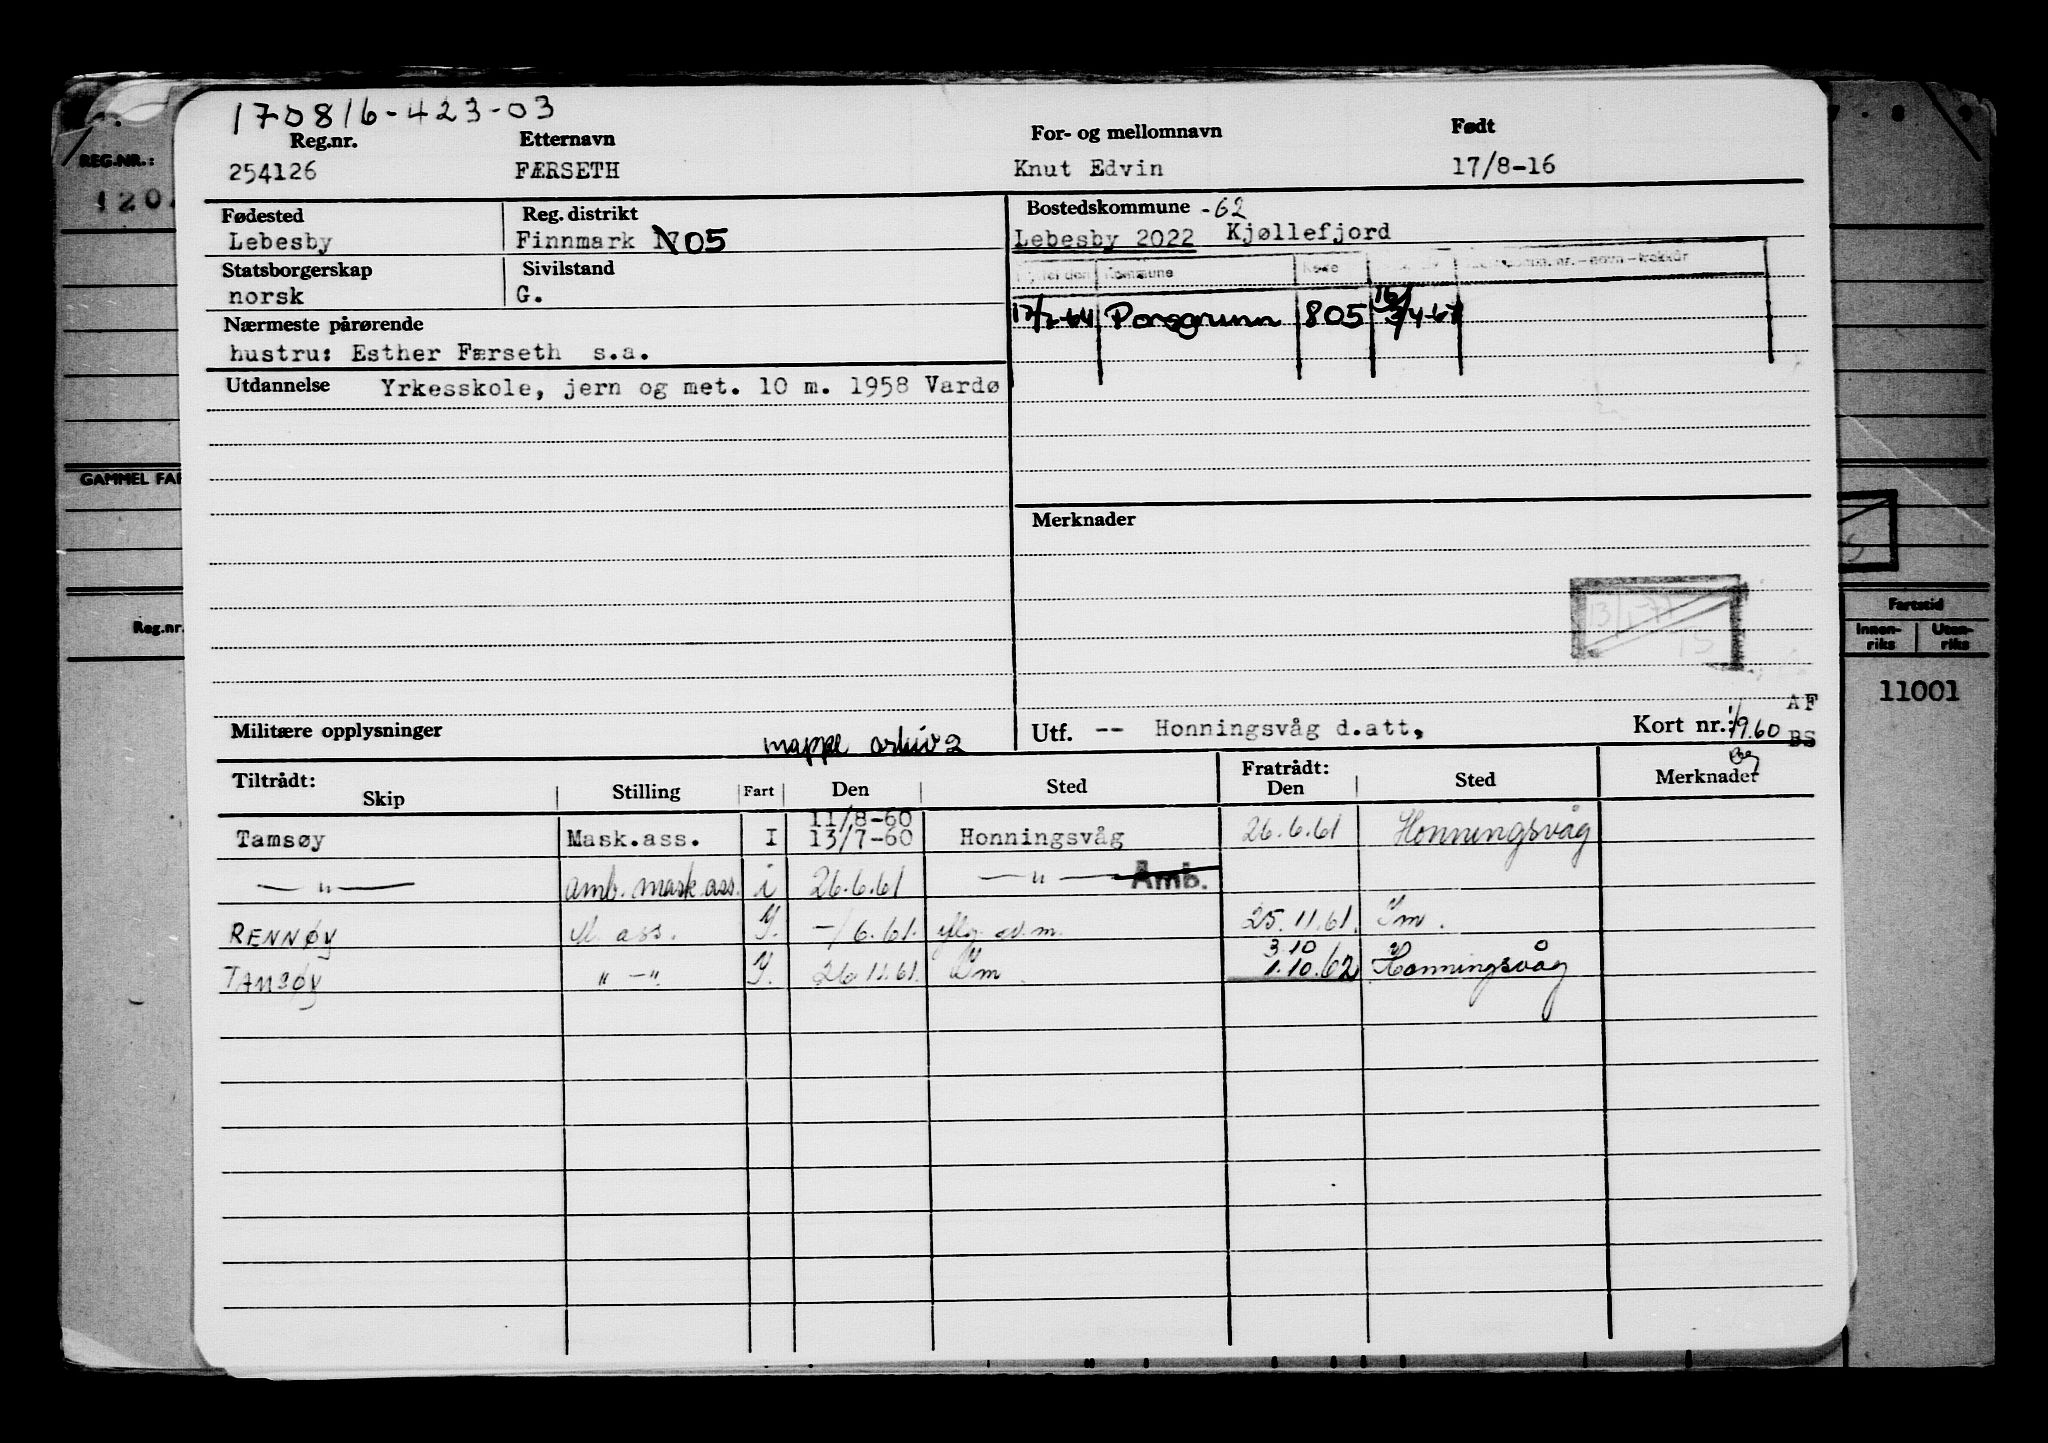 170816-423-03
Reg.nr. Etternavn For- og mellomnavn Født
254126 FÆRSETH Knut Edvin 17/8-16
REG.NR.:
120
Fødested Reg. distrikt Bostedskommune -62
Lebesby Finnmark N05 Lebesby 2022 Kjøllefjord
Statsborgerskap Sivilstand
norsk G.
Kommune Kode
17/2-64 Porsgrunn 805
Nærmeste pårørende
hustru: Esther Færseth s.a.
Utdannelse Yrkesskole, jern og met. 10 m. 1958 Vardø
GAMMEL FAR
Merknader
Reg.nr.
Fartstid
Innen-riks Uten-riks
11001
AF
Militære opplysninger mappe arkiv 2 Utf. -- Honningsvåg d.att, Kort nr.: 1/9.60 BS
Tiltrådt: Fratrådt:
Skip Stilling Fart Den Sted Den Sted Merknader
11/8-60
Tamsøy Mask.ass. I 13/7-60 Honningsvåg 26.6.61 Honningsvåg
— " — amb. mask ass. i 26.6.61 — " — Amb.
RENNØY M. ass. I. -/6.61. 25.11.61. Hm.
3.10
TAMSØY " — " I. 26.11.61. Hm 1.10.62 Honningsvåg